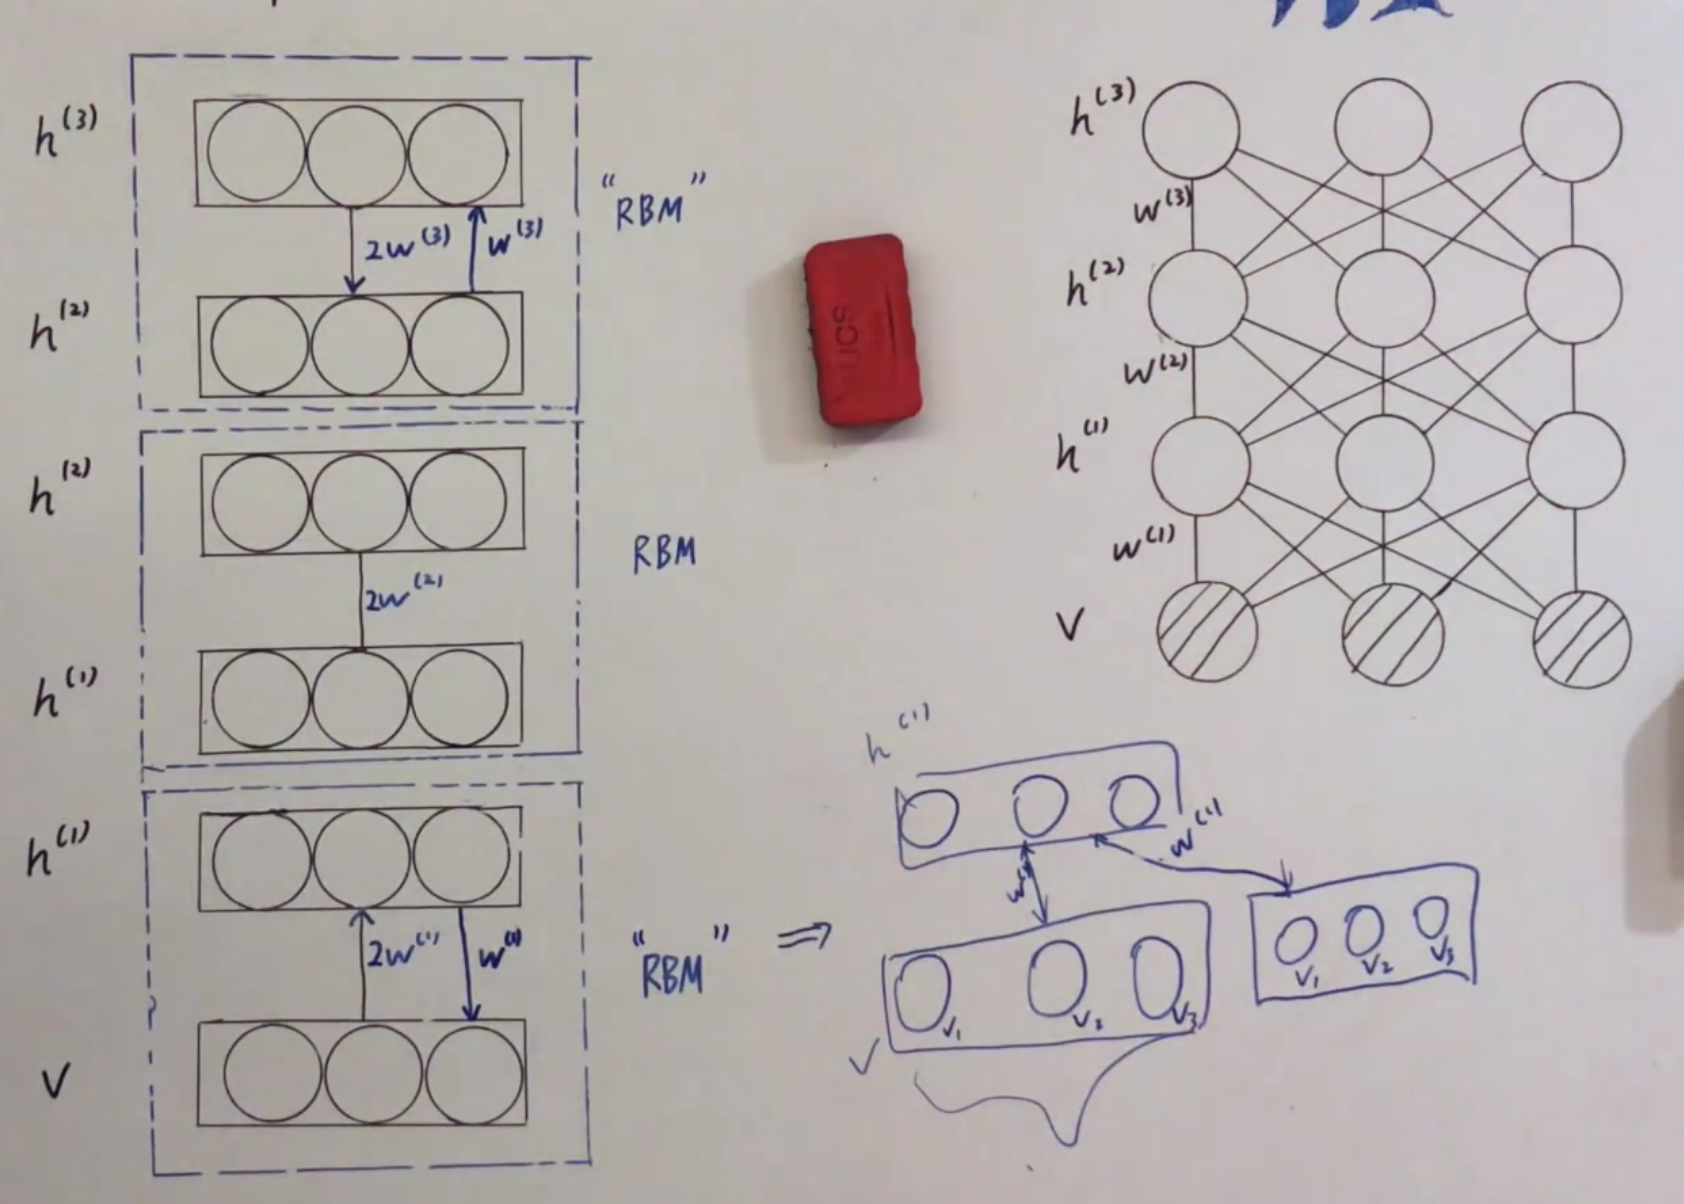 h^(3)
2w^(3)
w^(3)
"RBM"
h^(2)
h^(2)
2w^(2)
RBM
h^(1)
h^(1)
2w^(1)
w^(1)
"RBM" ⇒
v
h^(3)
w^(3)
h^(2)
w^(2)
h^(1)
w^(1)
v
h^(1)
w^(1)
v₁ v₂ v₃
v₁ v₂ v₃
v